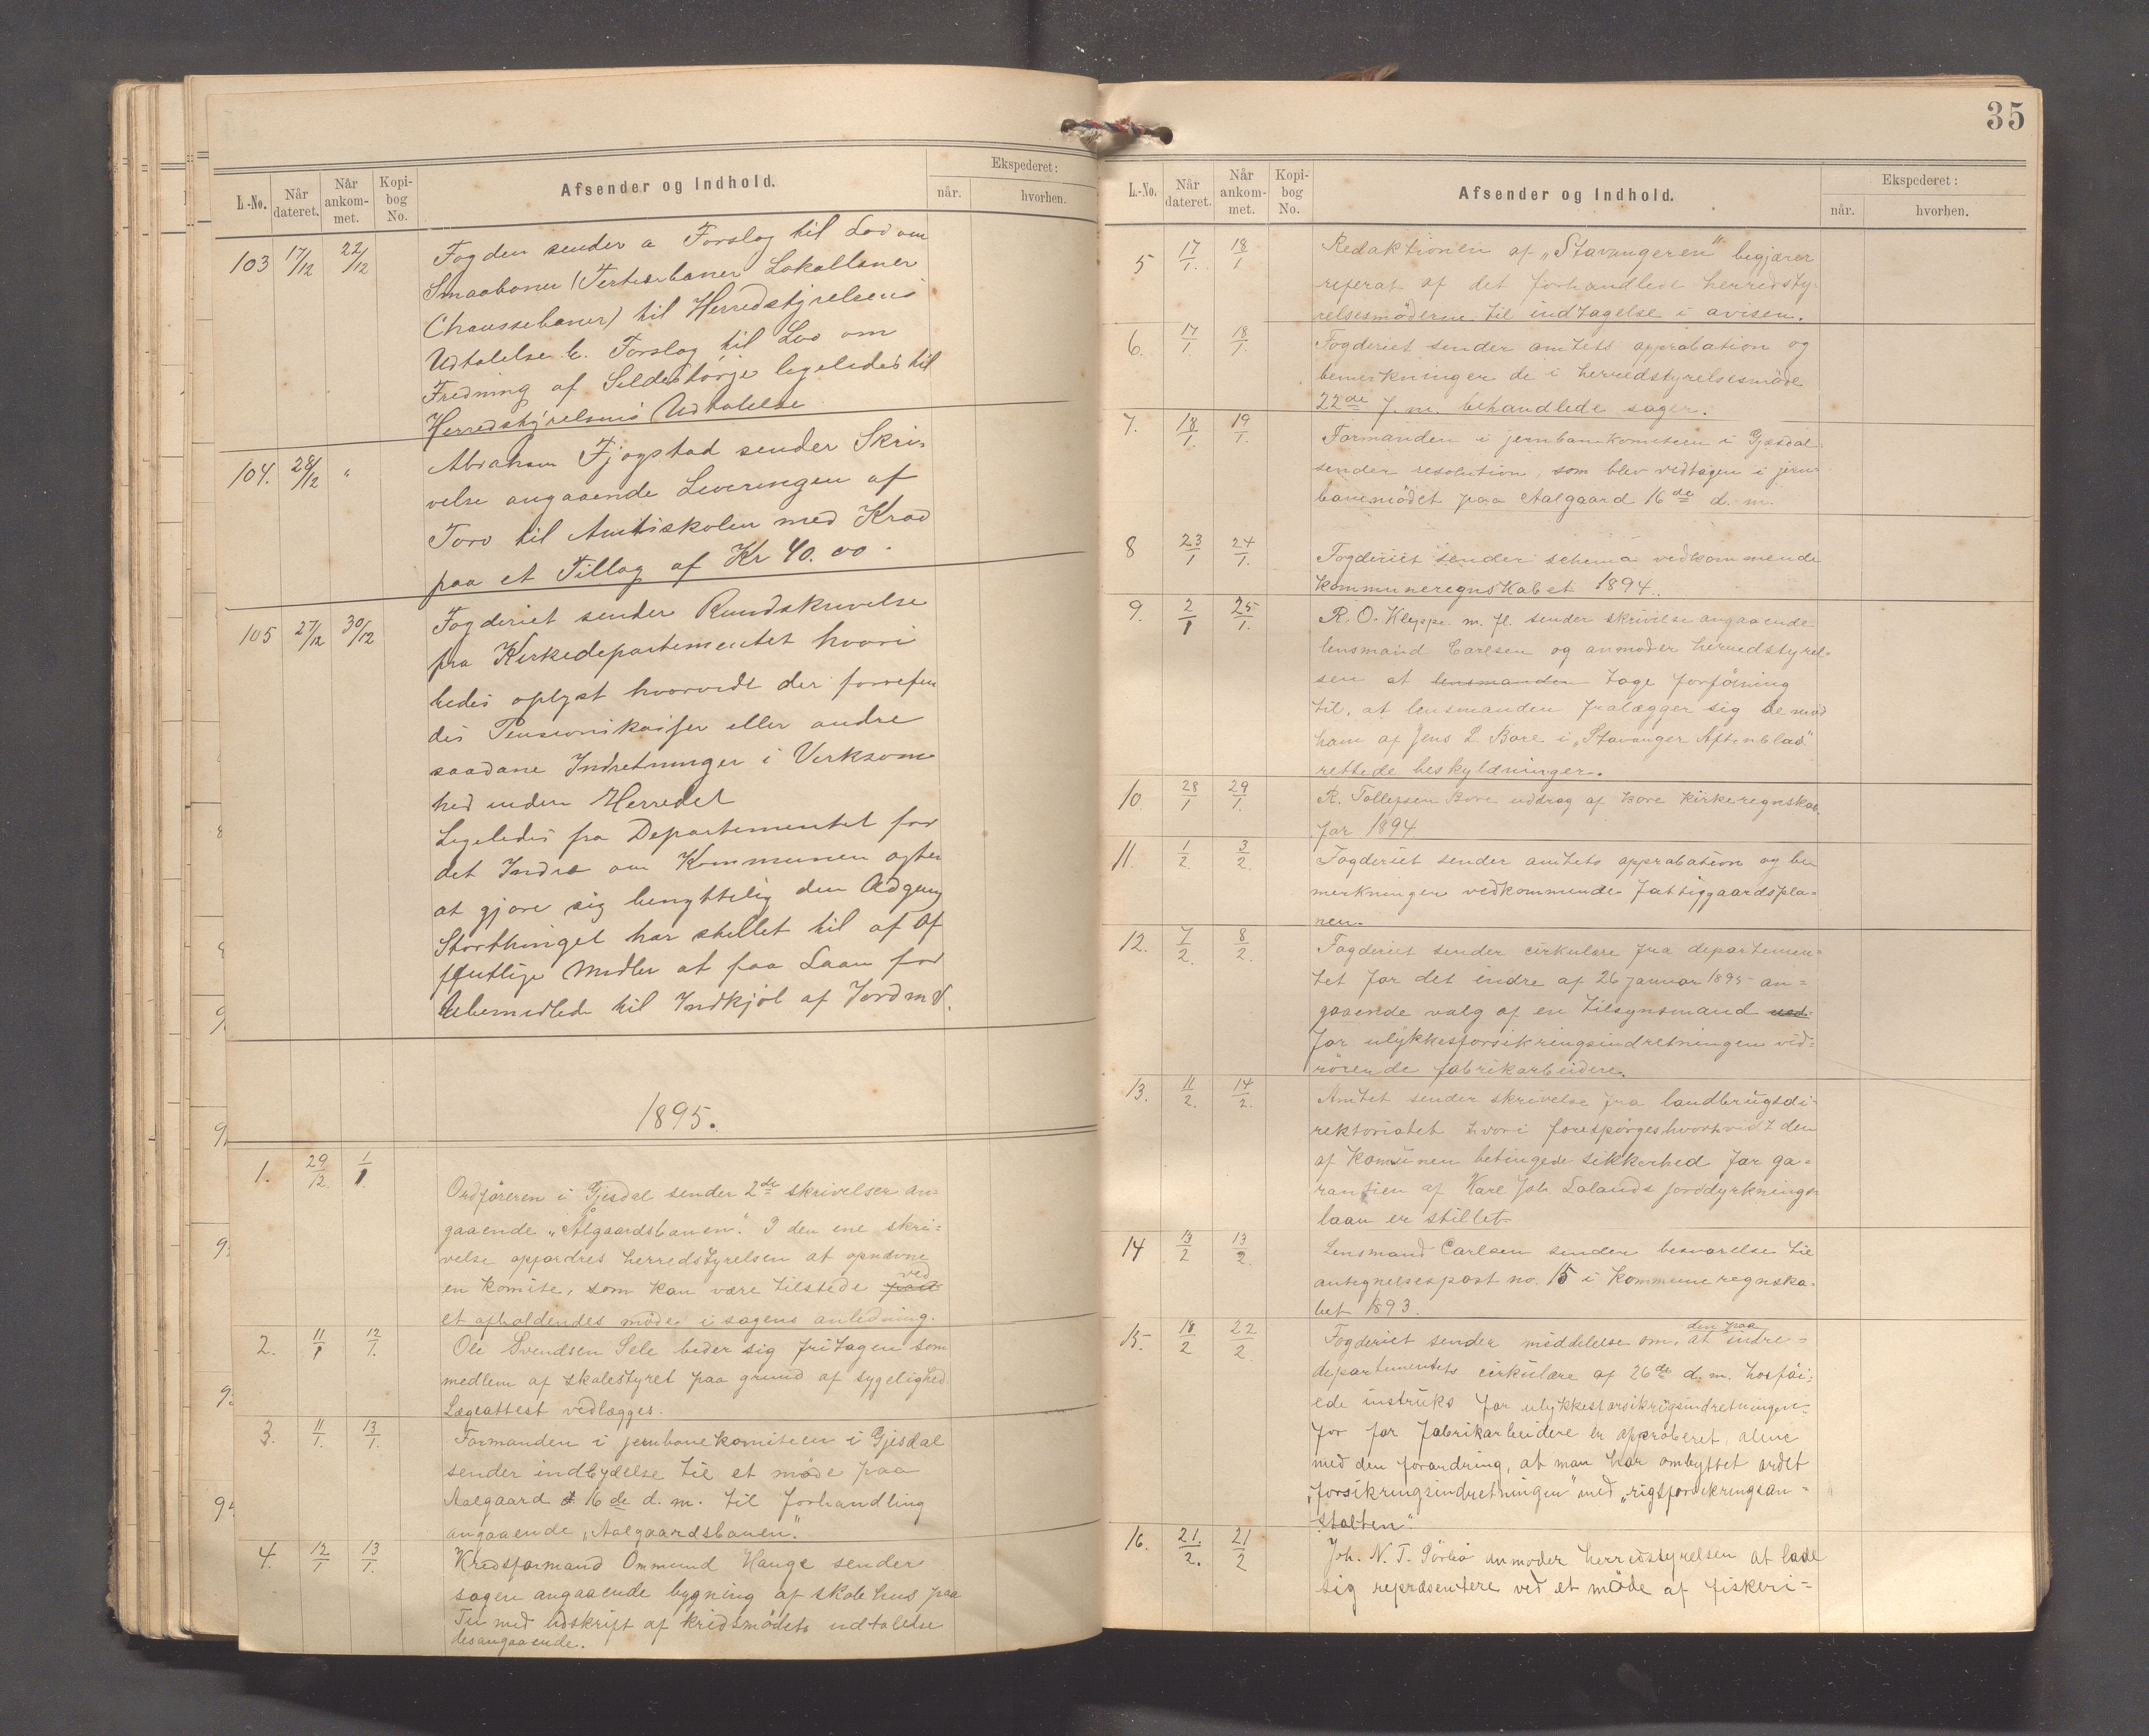 L.-No. Når dateret. Når ankommet. Kopibog No. Afsender og Indhold. Ekspederet: når. hvorhen.
103 17/12 22/12 Fogden sender a Forslag til Lov om
Smaabaner (Tertiærbaner Lokalbaner
Chaussebaner) til Herredstyrelsens
Udtalelse b. Forslag til Lov om
Fredning af Silde ligeledes til
Herredstyrelsens Udtalelse
104. 28/12 " Abraham Fjogstad sender Skri-
velse angaaende Leveringen af
Torv til Amtsskolen med Krav
paa et Tillag af Kr 40.00.
105 27/12 30/12 Fogderiet sender Rundskrivelse
fra Kirkedepartementet hvori
bedes oplyst hvorvidt der forefin
des Pensionskasser eller andre
saadane Indretninger i Virksom
hed inden Herredet
Ligeledes fra Departementet for
det Indre om Kommunen agter
at gjøre sig benyttelig den Adgang
Storthinget har stillet til af of
fentlige Midler at faa Laan for
Ubemidlede til Indkjøb af Jord m v.
1895.
1. 29/12. 1/1. Ordføreren i Gjesdal sender 2de skrivelser an-
gaaende "Ålgaardsbanen". I den ene skri-
velse opfordres herredstyrelsen at opnævne
ved
en komite, som kan være tilstede paa
et afholdendes møde i sagens anledning.
2. 11/1 12/1. Ole Svendsen Sele beder sig fritagen som
medlem af skolestyret paa grund af sygelighed
Lægeattest vedlægges.
3. 11/1. 13/1. Formanden i jernbanekomiteen i Gjesdal
sender indbydelse til et møde paa
Aalgaard d 16de d. m. til forhandling
angaaende "Aalgaardsbanen".
4. 12/1 13/1. Kredsformand Ommund Hauge sender
sagen angaaende bygning af skolehus paa
Tu med udskrift af kredsmødets udtalelse
desangaaende.
35
L.-No. Når dateret. Når ankommet. Kopibog No. Afsender og Indhold. Ekspederet: når. hvorhen.
5 17/1. 18/1 Redaktionen af "Stavangeren" begjærer
referat af det forhandlede herredsty-
relsesmøderne til indtagelse i avisen.
6. 17/1 18/1. Fogderiet sender amtets approbation og
bemerkninger de i herredstyrelsesmøde
22de f. m. behandlede sager.
7. 18/1. 19/1. Formanden i jernbanekomiteen i Gjesdal
sender resolution, som blev vedtagen i jern-
banemødet paa Aalgaard 16de d. m.
8 23/1 24/1. Fogderiet sender schema vedkommende
kommuneregnskabet 1894.
9. 2/1 25/1. R. O. Kleppe m. fl. sender skrivelse angaaende
lensmand Carlsen og anmoder herredstyrel-
sen at lensmanden tage forføining
til, at lensmanden fralægger sig de mod
ham af Jens L. Bore i "Stavanger Aftenblad"
rettede beskyldninger.
10. 28/1 29/1. R. Tollefsen Bore uddrag af Bore kirkeregnskab
for 1894
11. 1/2 3/2. Fogderiet sender amtets approbation og be
merkninger vedkommende fattiggaardspla-
nen.
12. 7/2. 8/2. Fogderiet sender cirkulære fra departemen-
tet for det indre af 26 januar 1895 an-
gaaende valg af en tilsynsmand ved
for ulykkesforsikringsindretningen ved-
rørende fabrikarbeidere.
13. 11/2. 14/2. Amtet sender skrivelse fra landbrugsdi-
rektoriatet hvori forespørges hvorvidt den
af komunen betingede sikkerhed for ga-
rantien af Karl Joh. Lalands jorddyrknings-
laan er stillet
14 13/2 13/2. Lensmand Carlsen sender besvarelse til
antegnelsespost no. 15 i kommuneregnska-
bet 1893.
den paa
15- 18/2 22/2. Fogderiet sender middelelse om, at indre-
departementets cirkulære af 26de d. m. hosføi-
ede instruks for ulykkesforsikrigsindretningen-
for for fabrikarbeidere er approberet, alene
med den forandring, at man har ombyttet ordet
"forsikringsindretningen" med "rigsforsikringsan-
stalten".
16. 21./2. 21/2 Joh. N. T. anmoder herredstyrelsen at lade
sig repræsentere ved et møde af fiskeri-